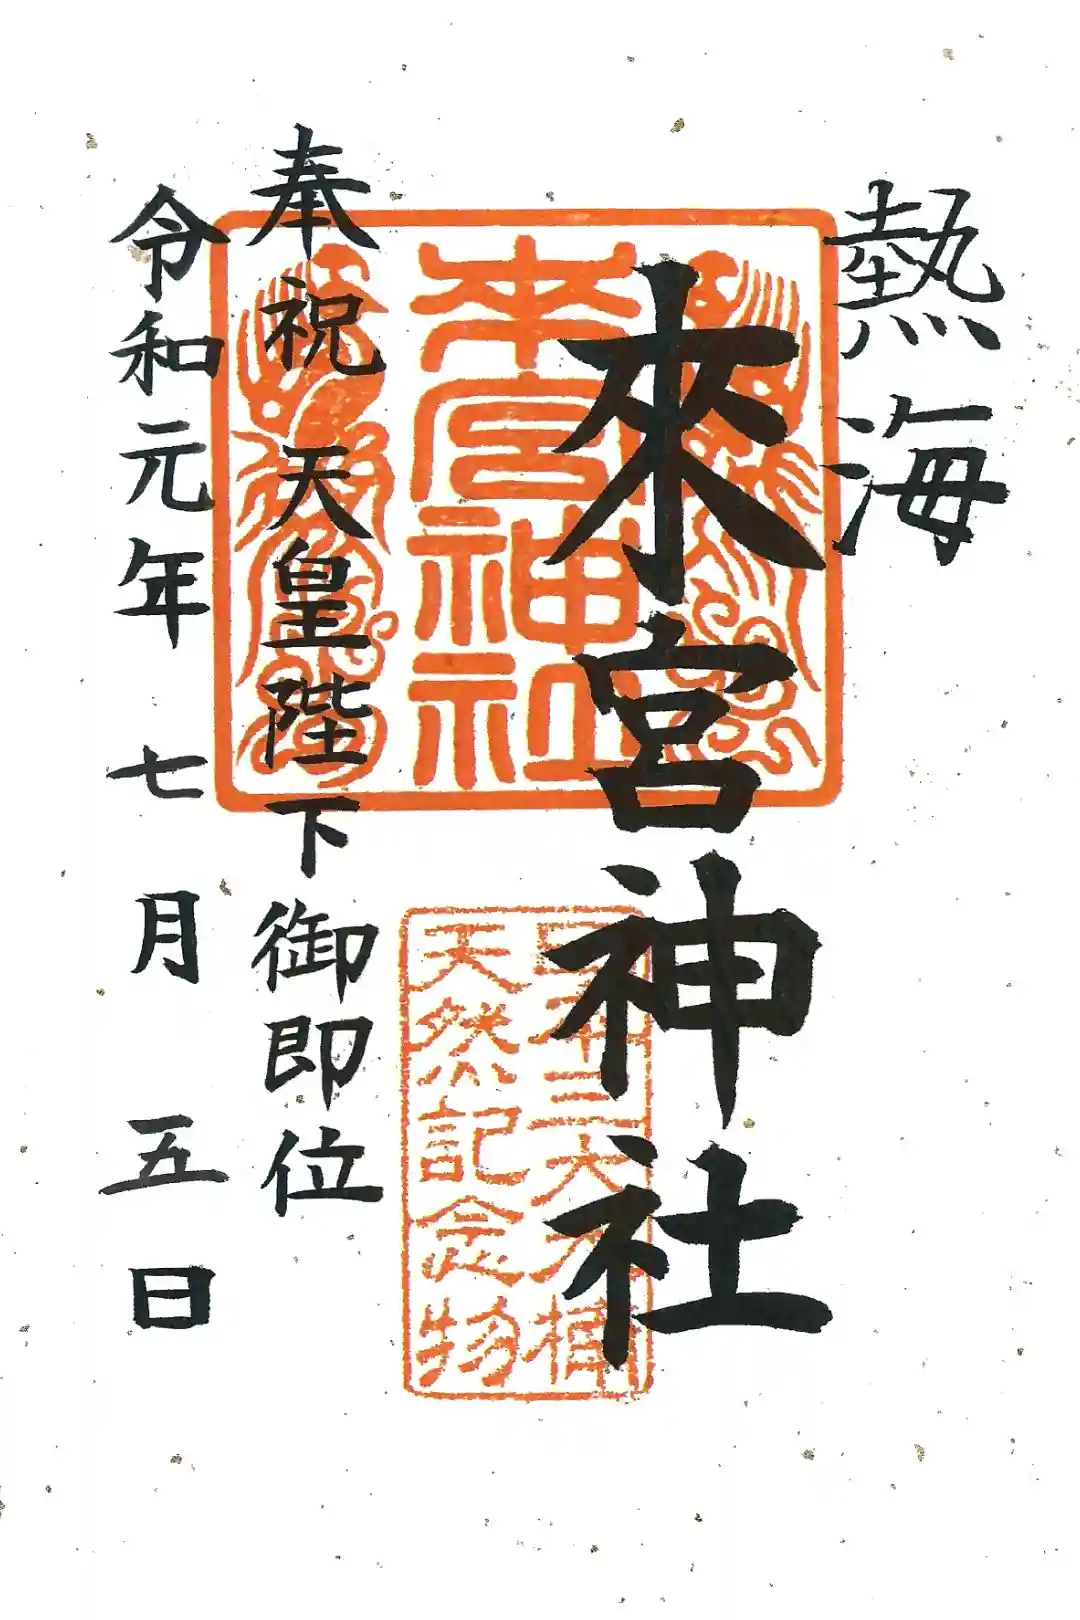 熱海
來宮神社
奉祝 天皇陛下御即位
令和元年 七月 五日
來宮神社
日本三大樟
天然記念物